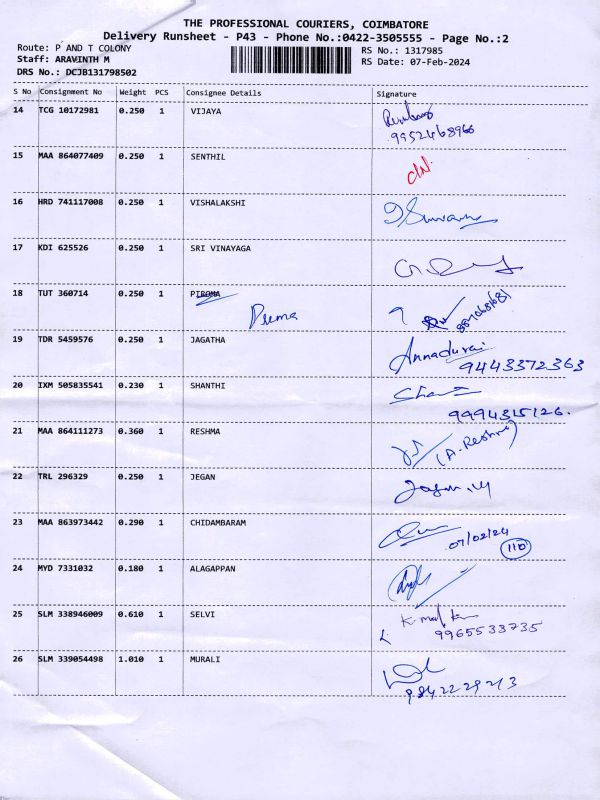 THE PROFESSIONAL COURIERS, COIMBATORE
Delivery Runsheet - P43 - Phone No.:0422-3505555 - Page No.:2
Route: P AND T COLONY
Staff: ARAVINTH M
DRS No.: DCJB131798502
RS No.: 1317985
RS Date: 07-Feb-2024
S No Consignment No Weight PCS Consignee Details Signature
14 TCG 10172981 0.250 1 VIJAYA
9952468966
15 MAA 864077409 0.250 1 SENTHIL
16 HRD 741117008 0.250 1 VISHALAKSHI
17 KDI 625526 0.250 1 SRI VINAYAGA
18 TUT 360714 0.250 1 PIROMA
Prema
19 TDR 5459576 0.250 1 JAGATHA Annadurai
9443372363
20 IXM 505835541 0.230 1 SHANTHI
9994315126.
21 MAA 864111273 0.360 1 RESHMA (A. Reshma)
22 TRL 296329 0.250 1 JEGAN
23 MAA 863973442 0.290 1 CHIDAMBARAM
07/02/24
110
24 MYD 7331032 0.180 1 ALAGAPPAN
25 SLM 338946009 0.610 1 SELVI
9965533735
26 SLM 339054498 1.010 1 MURALI
9842229213